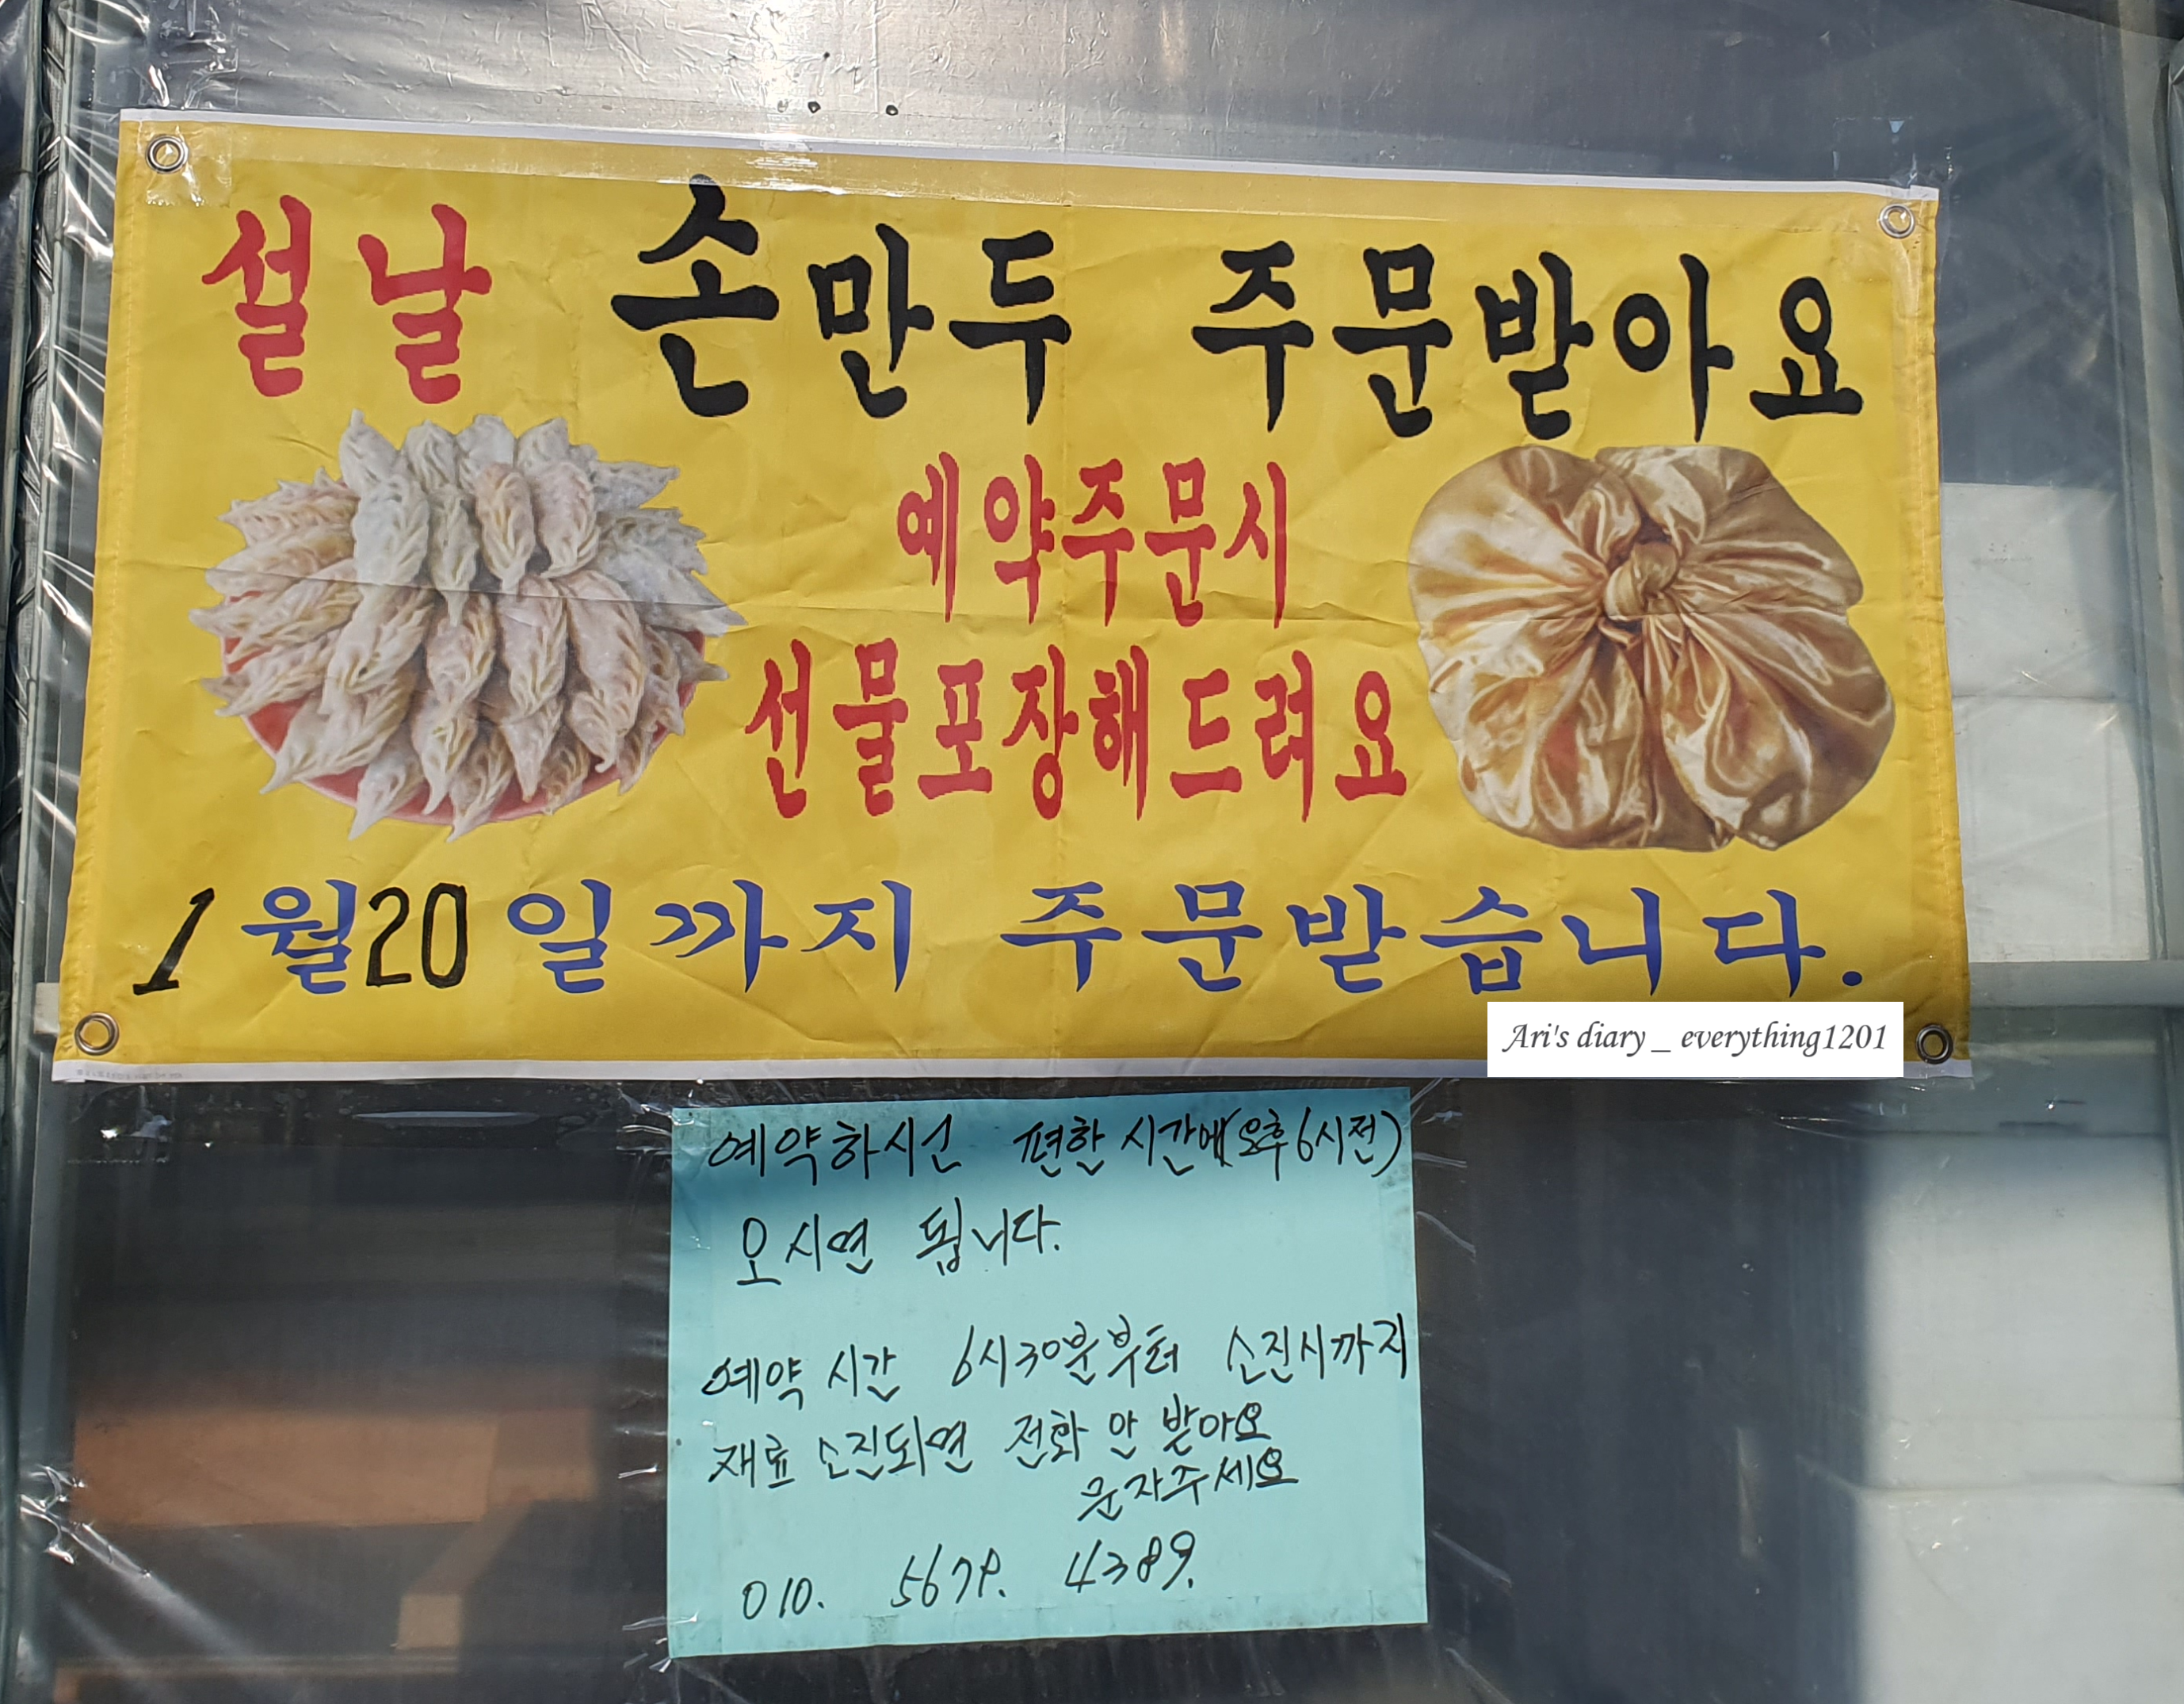 설날 손만두 주문받아요
예약주문시
선물포장해드려요
1월20일까지 주문받습니다.
Ari's diary _ everything1201
예약하시고 편한 시간에(오후6시전)
오시면 됩니다.
예약 시간 6시30분부터 소진시까지
재료 소진되면 전화 안 받아요
문자주세요
010. 4389.